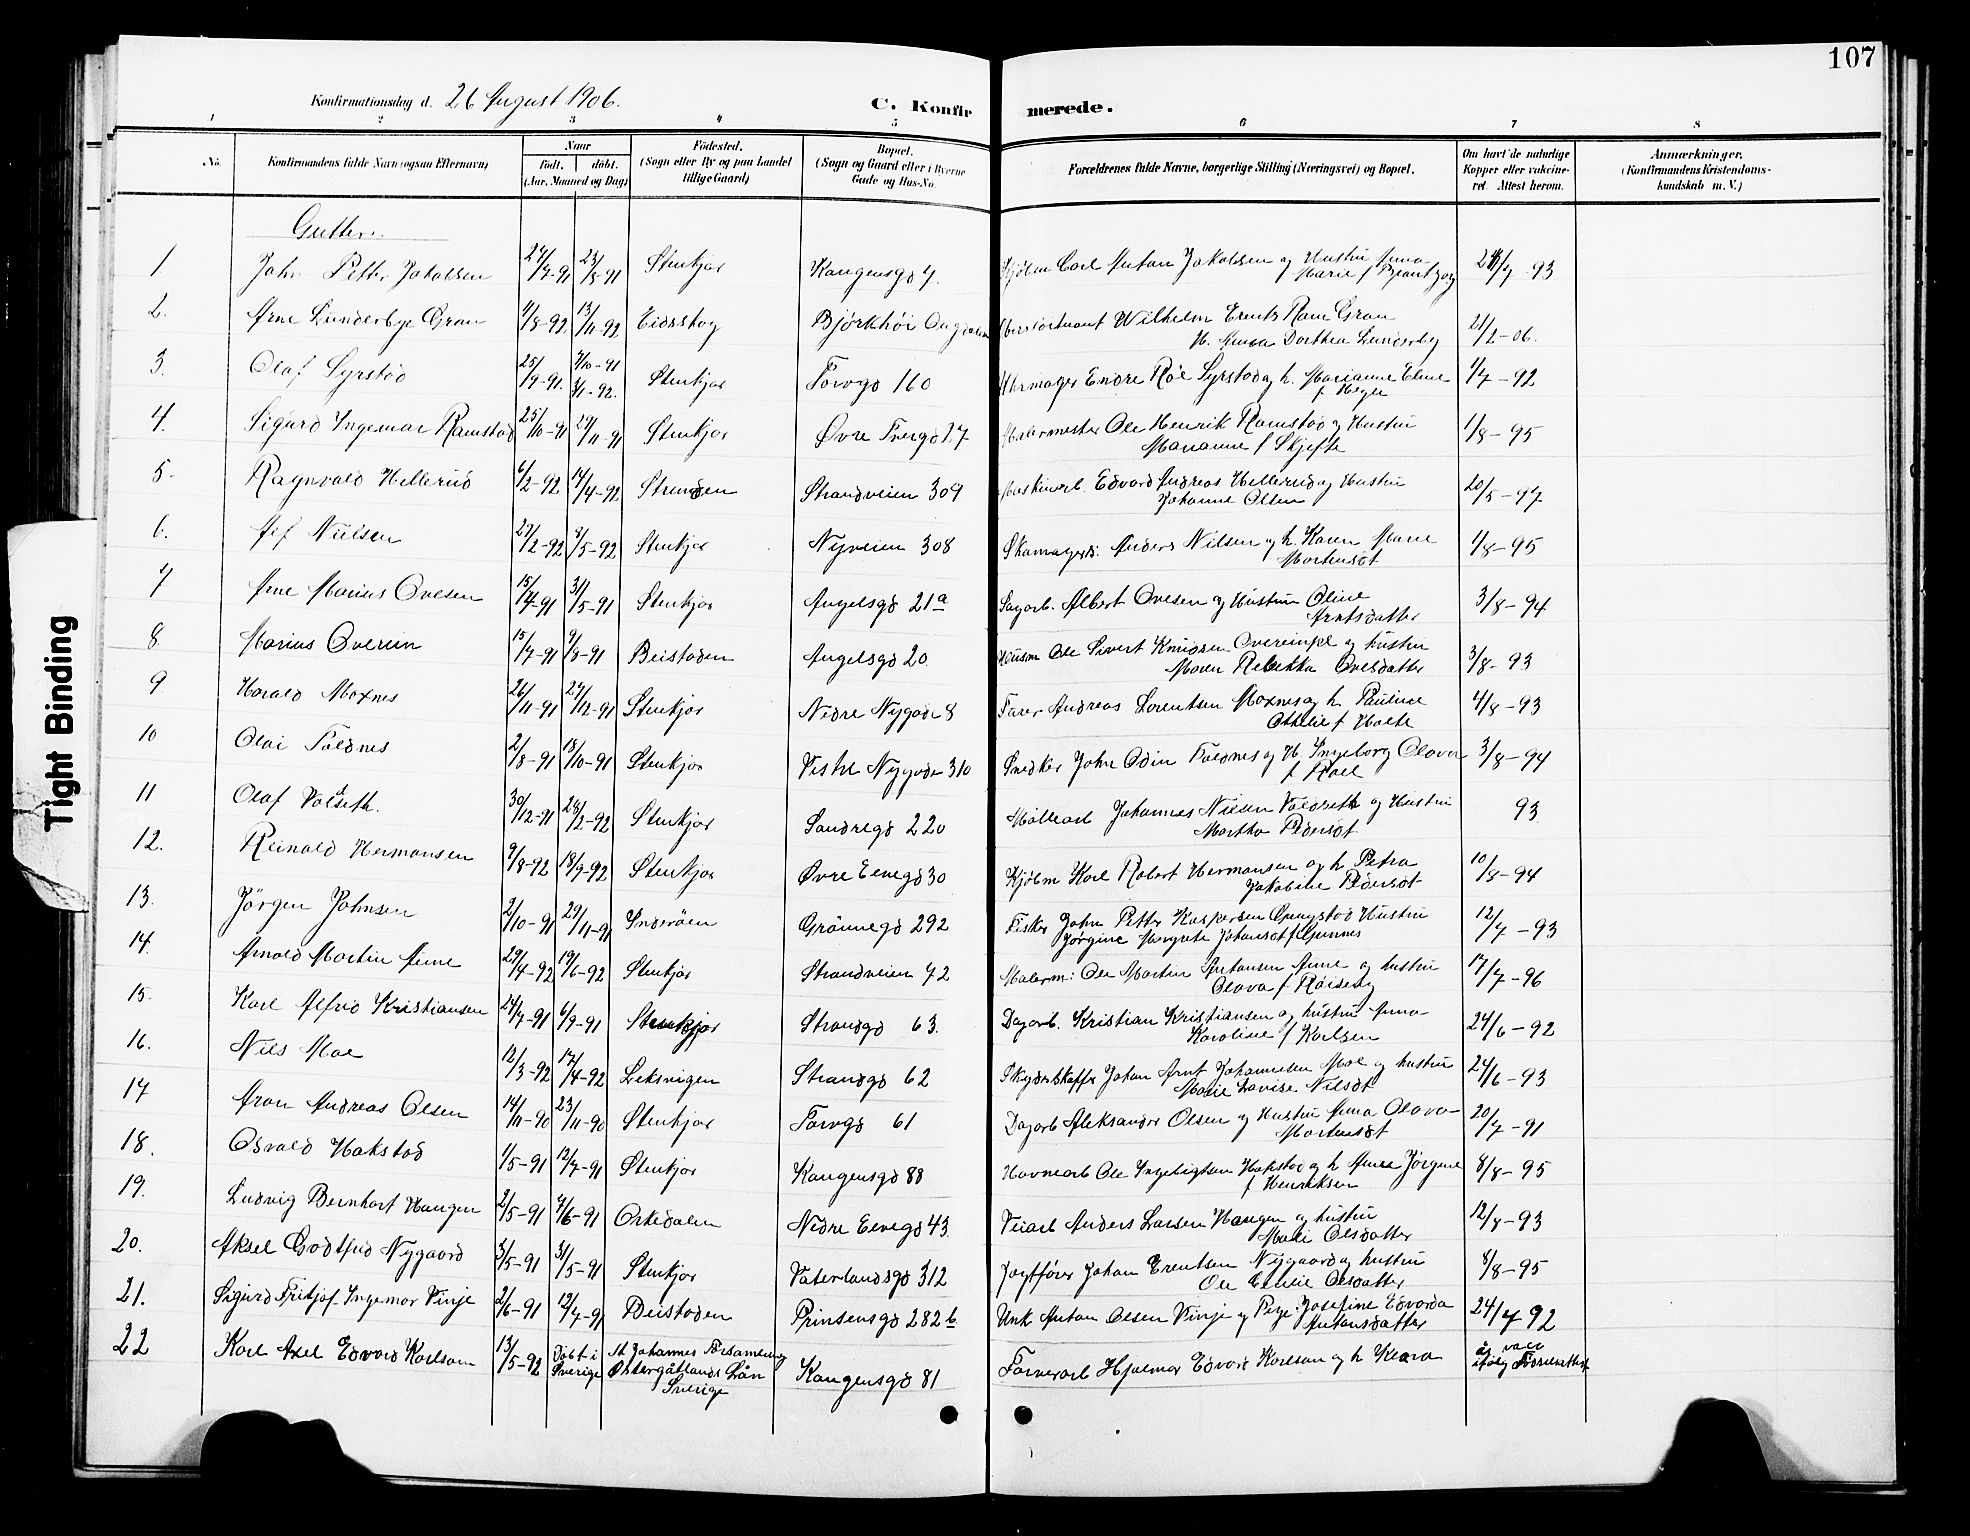 107
Konfirmationsdag d. 26 August 1906.
C. Konfir merede.
1 2 3 4 5 6 7 8
No. Konfirmandens fulde Navn (ogsaa Efternavn) Naar født. døbt. (Aar, Maaned og Dag) Fødested. (Sogn eller By og paa Landet tillige Gaard) Bopæl. (Sogn og Gaard eller i Byerne Gade og Hus-No. Forældrenes fulde Navne, borgerlige Stilling (Næringsvei) og Bopæl. Om havt de naturlige Kopper eller vakcineret Attest herom. Anmærkninger. (Konfirmandens Kristendomskundskab m. V.)
Gutter.
1 John Petter Jakobsen 27/7-91 23/8-91 Stenkjær Kongensgd 7. Kjøbm Carl Anton Jakobsen og Hustru Anna Marie f. 93
2. Arne Lunderbye Gran 1/8-92 13/11-92 Eidsskog Björkhöi Wilhelm Gran H. Anna Dorthea Lunderby 21/2-06.
3. Olaf Syrstad 25/9-91. 4/10-91 3/1-92. Stenkjær Torvgd 160 Uhrmager Endre Röe Syrstad og h. Marianne Eline f Heyer 1/7-92
4. Sigurd Ingemar Ramstad 25/10-91 29/11-91 Stenkjær Øvre Tvergd 27 Malermester Ole Henrik Ramstad og Hustru Marianne f Skjefte 1/8-95
5. Ragnvald Hellerud 6/2-92 14/4-92 Strinden Strandveien 309 Maskinarb. Edvard Andreas Hellerud og Hustru Johanne Olsen 20/5-97
6. Alf Nielsen 27/2-92 /5-92 Stenkjær Nyveien 308 Skomagers: Anders Nilsen og h. Karen Marie Mortensdt 1/8-95
7 Arne Marius Ovesen 15/4-91 31/5-91 Stenkjær Angelsgd 21a Sagarb. Albert Ovesen og Hustru Oline Arntsdatter 3/8-94
8. Marius Overein 15/7-91 9/8-91 Beistaden Angelsgd 20. Husm Ole Sivert Knudsen Overeinpl og hustru Maren Rebekka Ovesdatter 3/8-93
9 Harald Moxnes 26/11-91 27/12-91 Stenkjær Nedre Nygade 8 Farver Andreas Lorentsen Moxnes og h Pauline Othelie f Holte 4/8-93
10 Olai Foldnes 2/8-91 18/10-91 Stenkjær Vestre Nygade 310 Snedker John Odin Foldnes og H. Ingeborg Olava f Roel 3/8-94
11 Olaf Valdseth. 30/12-91 28/2-92 Stenkjær Søndregd 220 Møllearb Johannes Nilsen Valdseth og Hustru Martha Pedersdt 93
12. Reinald Hermansen 9/8-92 18/9-92 Stenkjær Øvre Elvegd 30 Kjøbm Karl Robert Hermansen og h Petra Jakobine Pedersdt 10/8-94
13. Jörgen Johnsen 2/10-91 29/11-91 Inderöen Grönnegd 292 Fisker John Petter Kaspersen Hustru Jørgine Margrete Johansdt 12/7-93
14. Arnold Martin Aune 29/4-92 19/6-92 Stenkjær Strandveien 72 Malerm: Ole Martin Antonsen Aune og hustru Olava f Røiseng 17/7-96
15. Karl Alfrid Kristiansen 24/7-91 6/9-91 Stenkjær Strandgd 63. Dagarb. Kristian Kristiansen og hustru Anna Karoline f Karlsen 24/6-92
16. Nils Moe 12/3-92 17/4-92 Leksvigen Strandgd 62 Skydsskaffer Johan Arnt Johannesen Moe og hustru Marie Lovise Nilsdt 24/6-93
17 Aron Andreas Olsen 14/11-90 23/11-90 Stenkjær Torvgd 61 Dagarb Aleksander Olsen og Hustru Anna Olava Mortensdt 20/7-91
18. Osvald Hakstad 1/5-91 12/7-91 Stenkjær Kongensgd 88 Havnearb Ole Ingebrigtsen Hakstad og h Anna Jörgine f Henriksen 8/8-95
19. Ludvig Bernhart Haugen 2/5-91 7/6-91 Orkedalen Nedre Elvegd 43. Veiarb Anders Larsen Haugen og hustru Mali Olsdatter 12/8-93
20. Aksel Godtfred Nygaard 3/5-91 31/5-91 Stenkjær Vaterlandsgd 312 Jagtfører Johan Erentsen Nygaard og hustru Olsdatter 8/8-95
21. Sigurd Fritjof Ingemar Vinje 2/6-91 12/7-91 Beistaden Prinsensgd 282b Unk Anton Olsen Vinje og Pige: Josefine Edvarda Antonsdatter 24/7 92
22 Karl Axel Edvard Karlson 13/5-92 Döbt i Sverige St Johannes Församling Østergøtlands Län Sverige Kongensgd 81 Farverarb Hjalmar Edvard Karlson og h Klara
Tight Binding